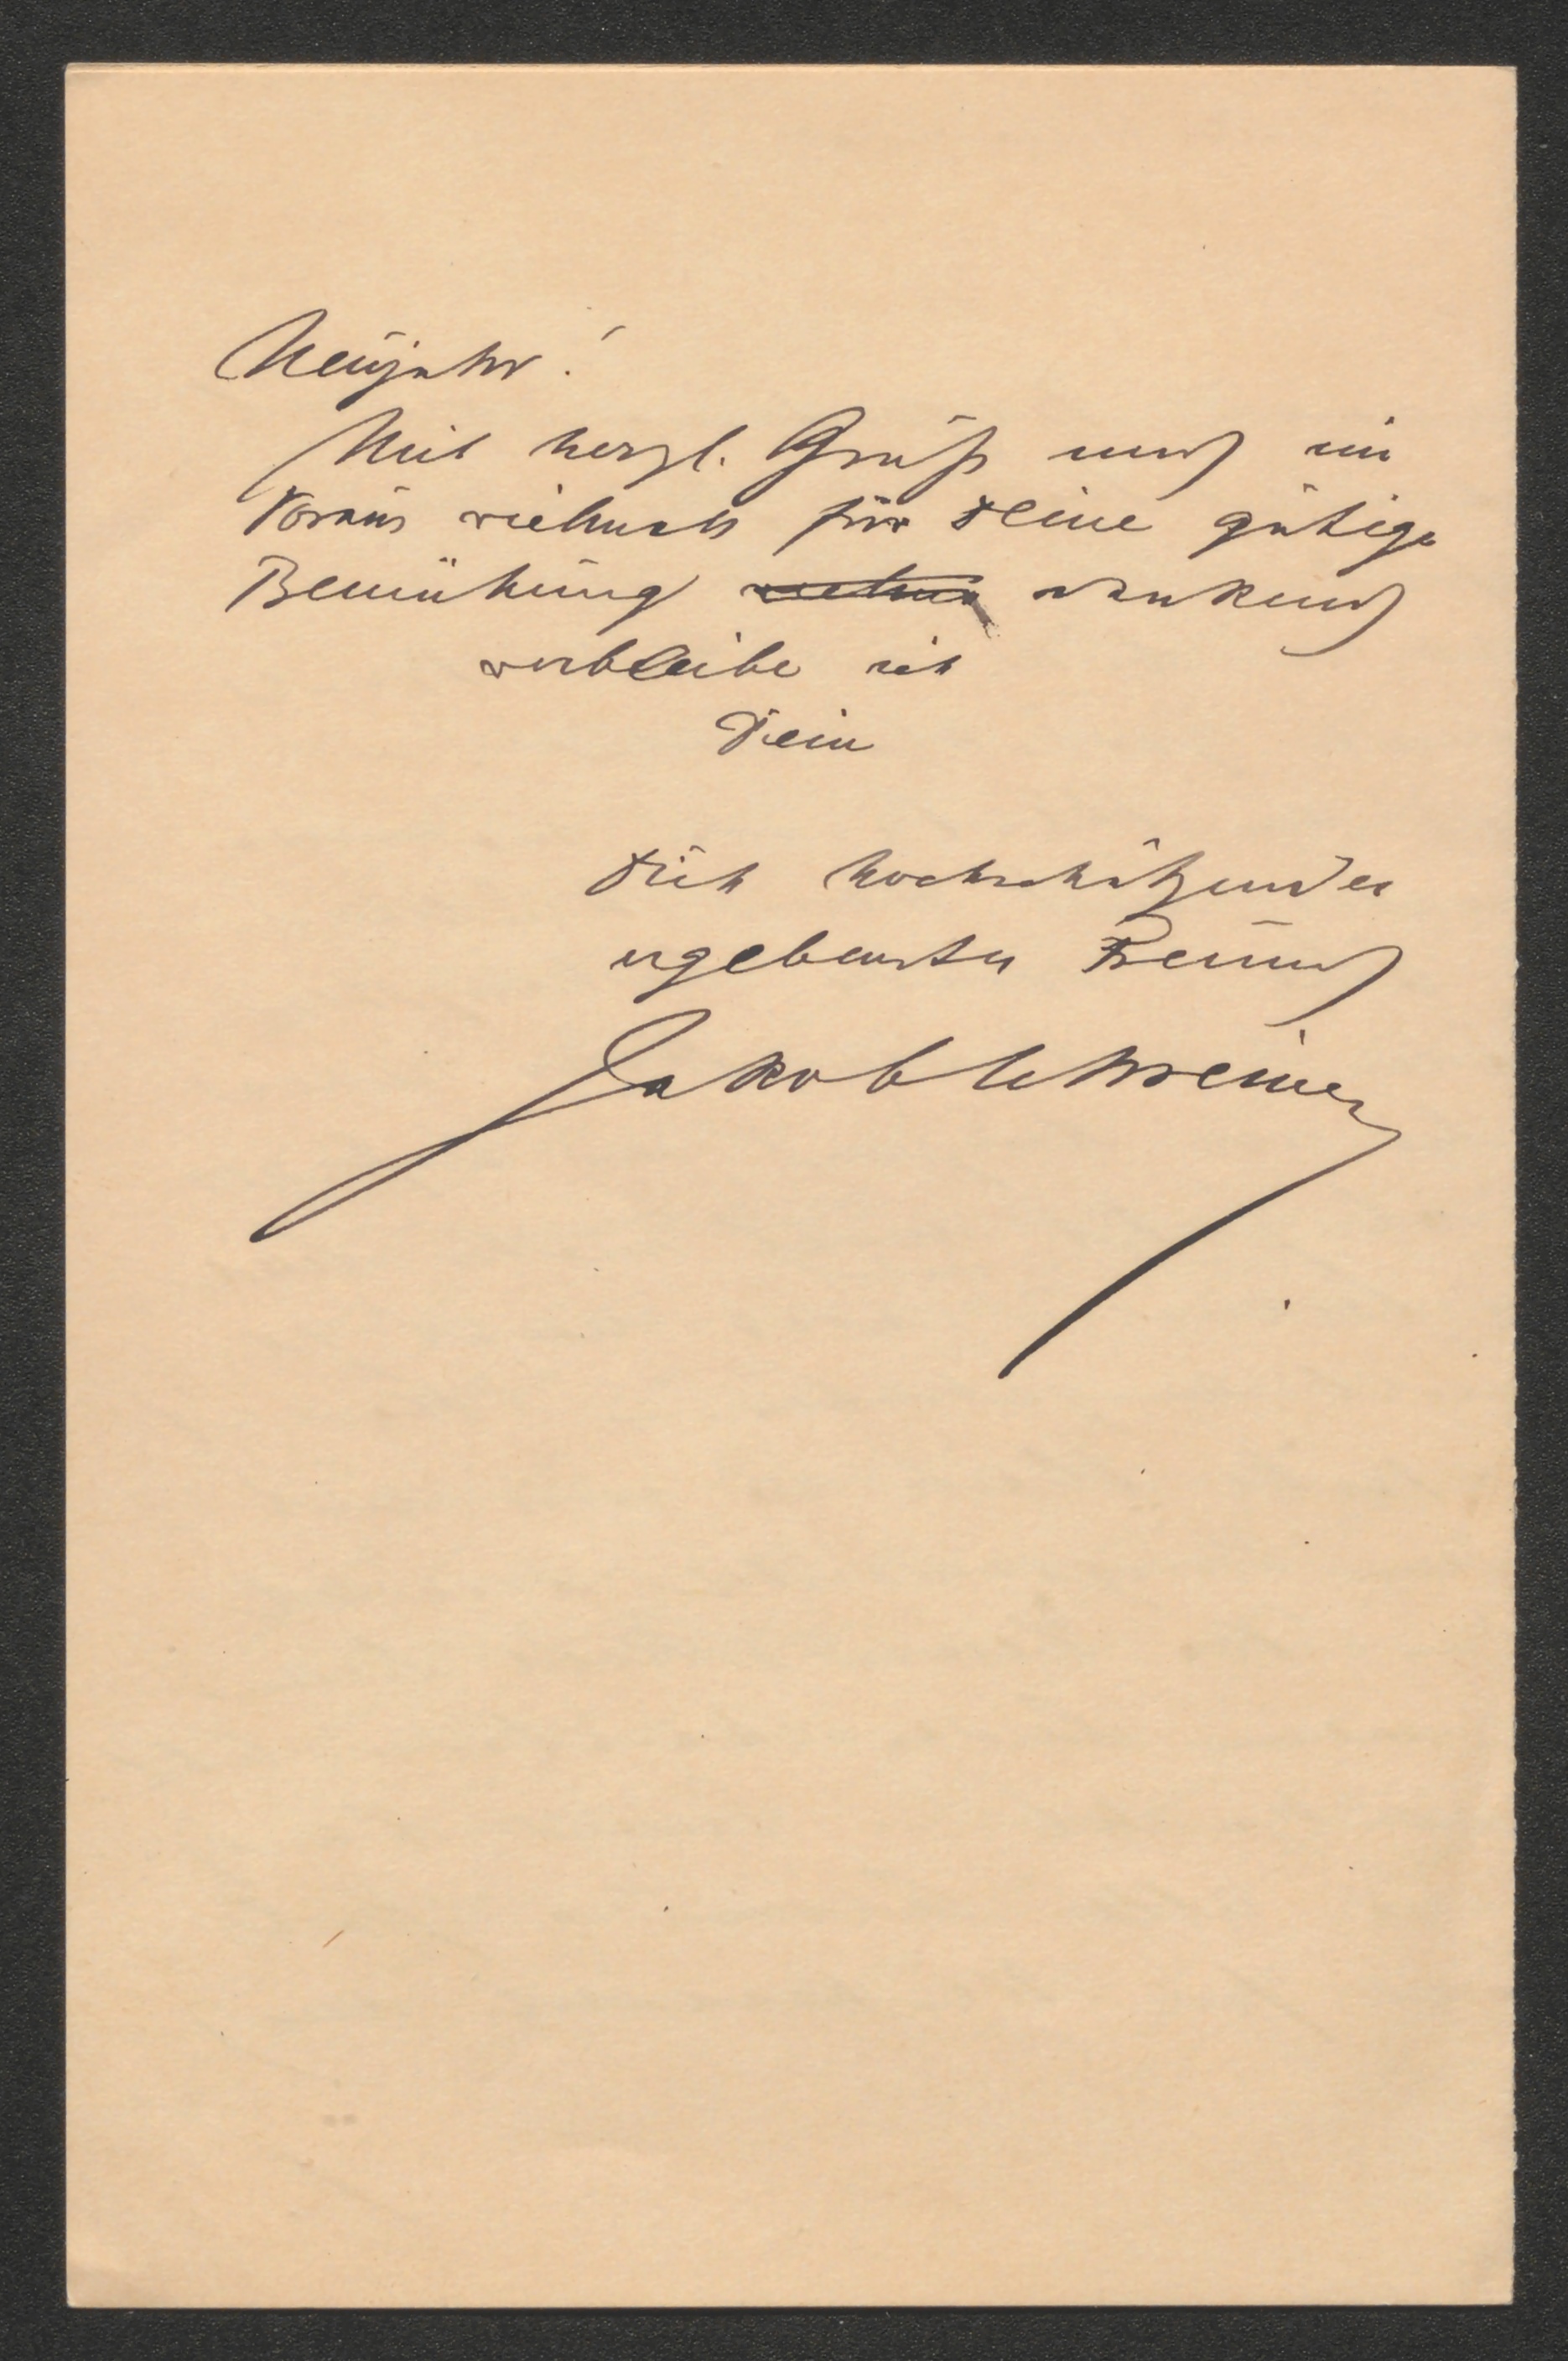 Neujahr!
Mit herzl. Gruß und im
Voraus vielmals für Deine gütige
Bemühung dankend
verbleibe ich
Dein
Dich hochschätzender
ergebenster Freund
Jakob Schreiner